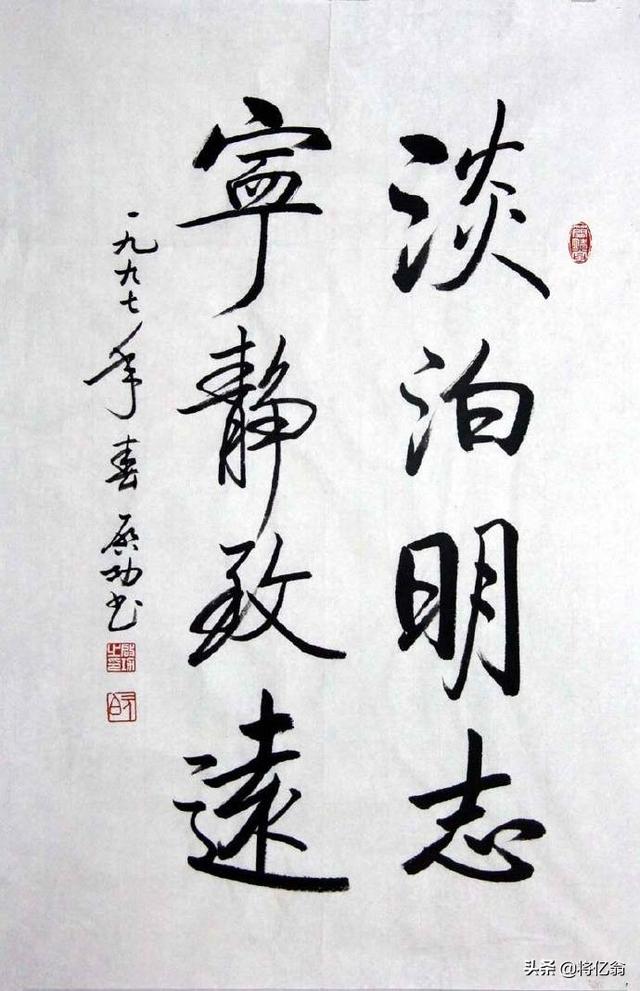 淡泊明志
寧靜致遠
一九九七年春 启功书
头条 @将亿翁